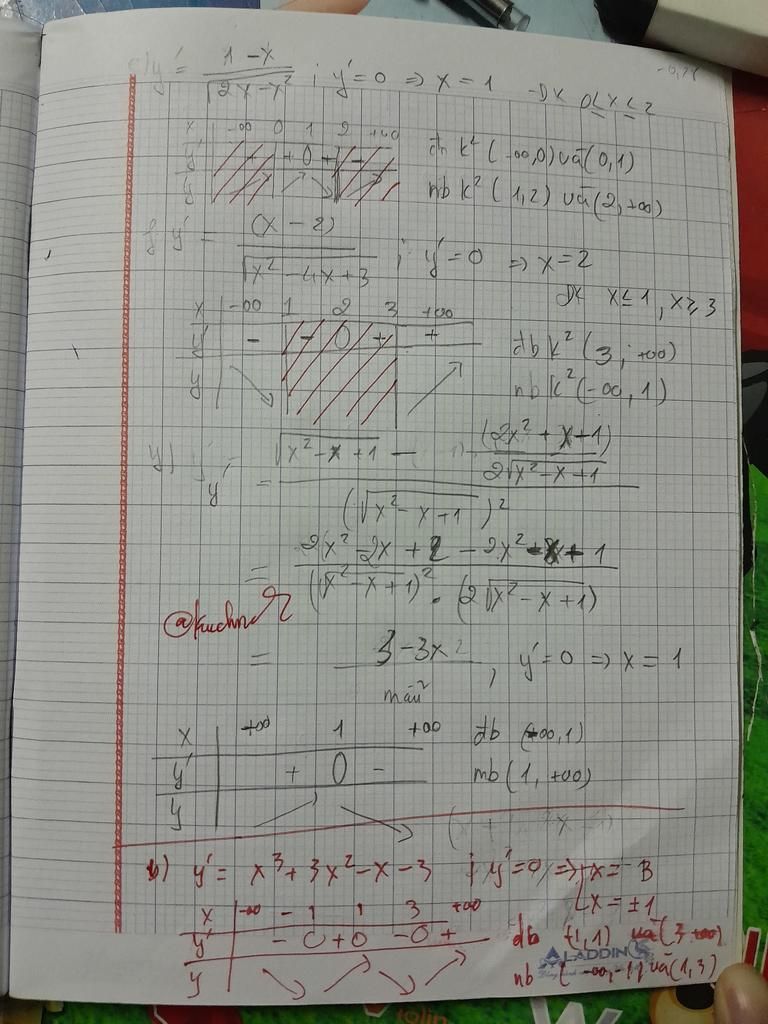 y' = (1 - x) / √(2x - x²) ; y' = 0 ⇒ x = 1 ĐK 0 ≤ x ≤ 2
x -∞ 0 1 2 +∞
y' + + 0 + -
y
đb k² (-∞, 0) và (0, 1)
nb k² (1, 2) và (2, +∞)
y' = (x - 2) / √(x² - 4x + 3) ; y' = 0 ⇒ x = 2
ĐK x ≤ 1, x ≥ 3
x -∞ 1 2 3 +∞
y' - - 0 + +
y
đb k² (3; +∞)
nb k² (-∞, 1)
y' = √(x² - x + 1) - (2x² + x + 1) / 2√(x² - x + 1)
(√(x² - x + 1))²
= 2x² - 2x + 2 - 2x² - x + 1
(√(x² - x + 1))² . (2√(x² - x + 1))
@kuchn
= 3 - 3x / mẫu² , y' = 0 ⇒ x = 1
x +∞ 1 +∞
y' + 0 -
y
đb (-∞, 1)
nb (1, +∞)
b) y' = x³ + 3x² - x - 3 ; y' = 0 ⇒ x = -3
x = ±1
x -∞ -1 1 3 +∞
y' - 0 + 0 - 0 +
y
đb (-1, 1) và (3 +∞)
nb (-∞, -1) và (1, 3)
ALADDIN